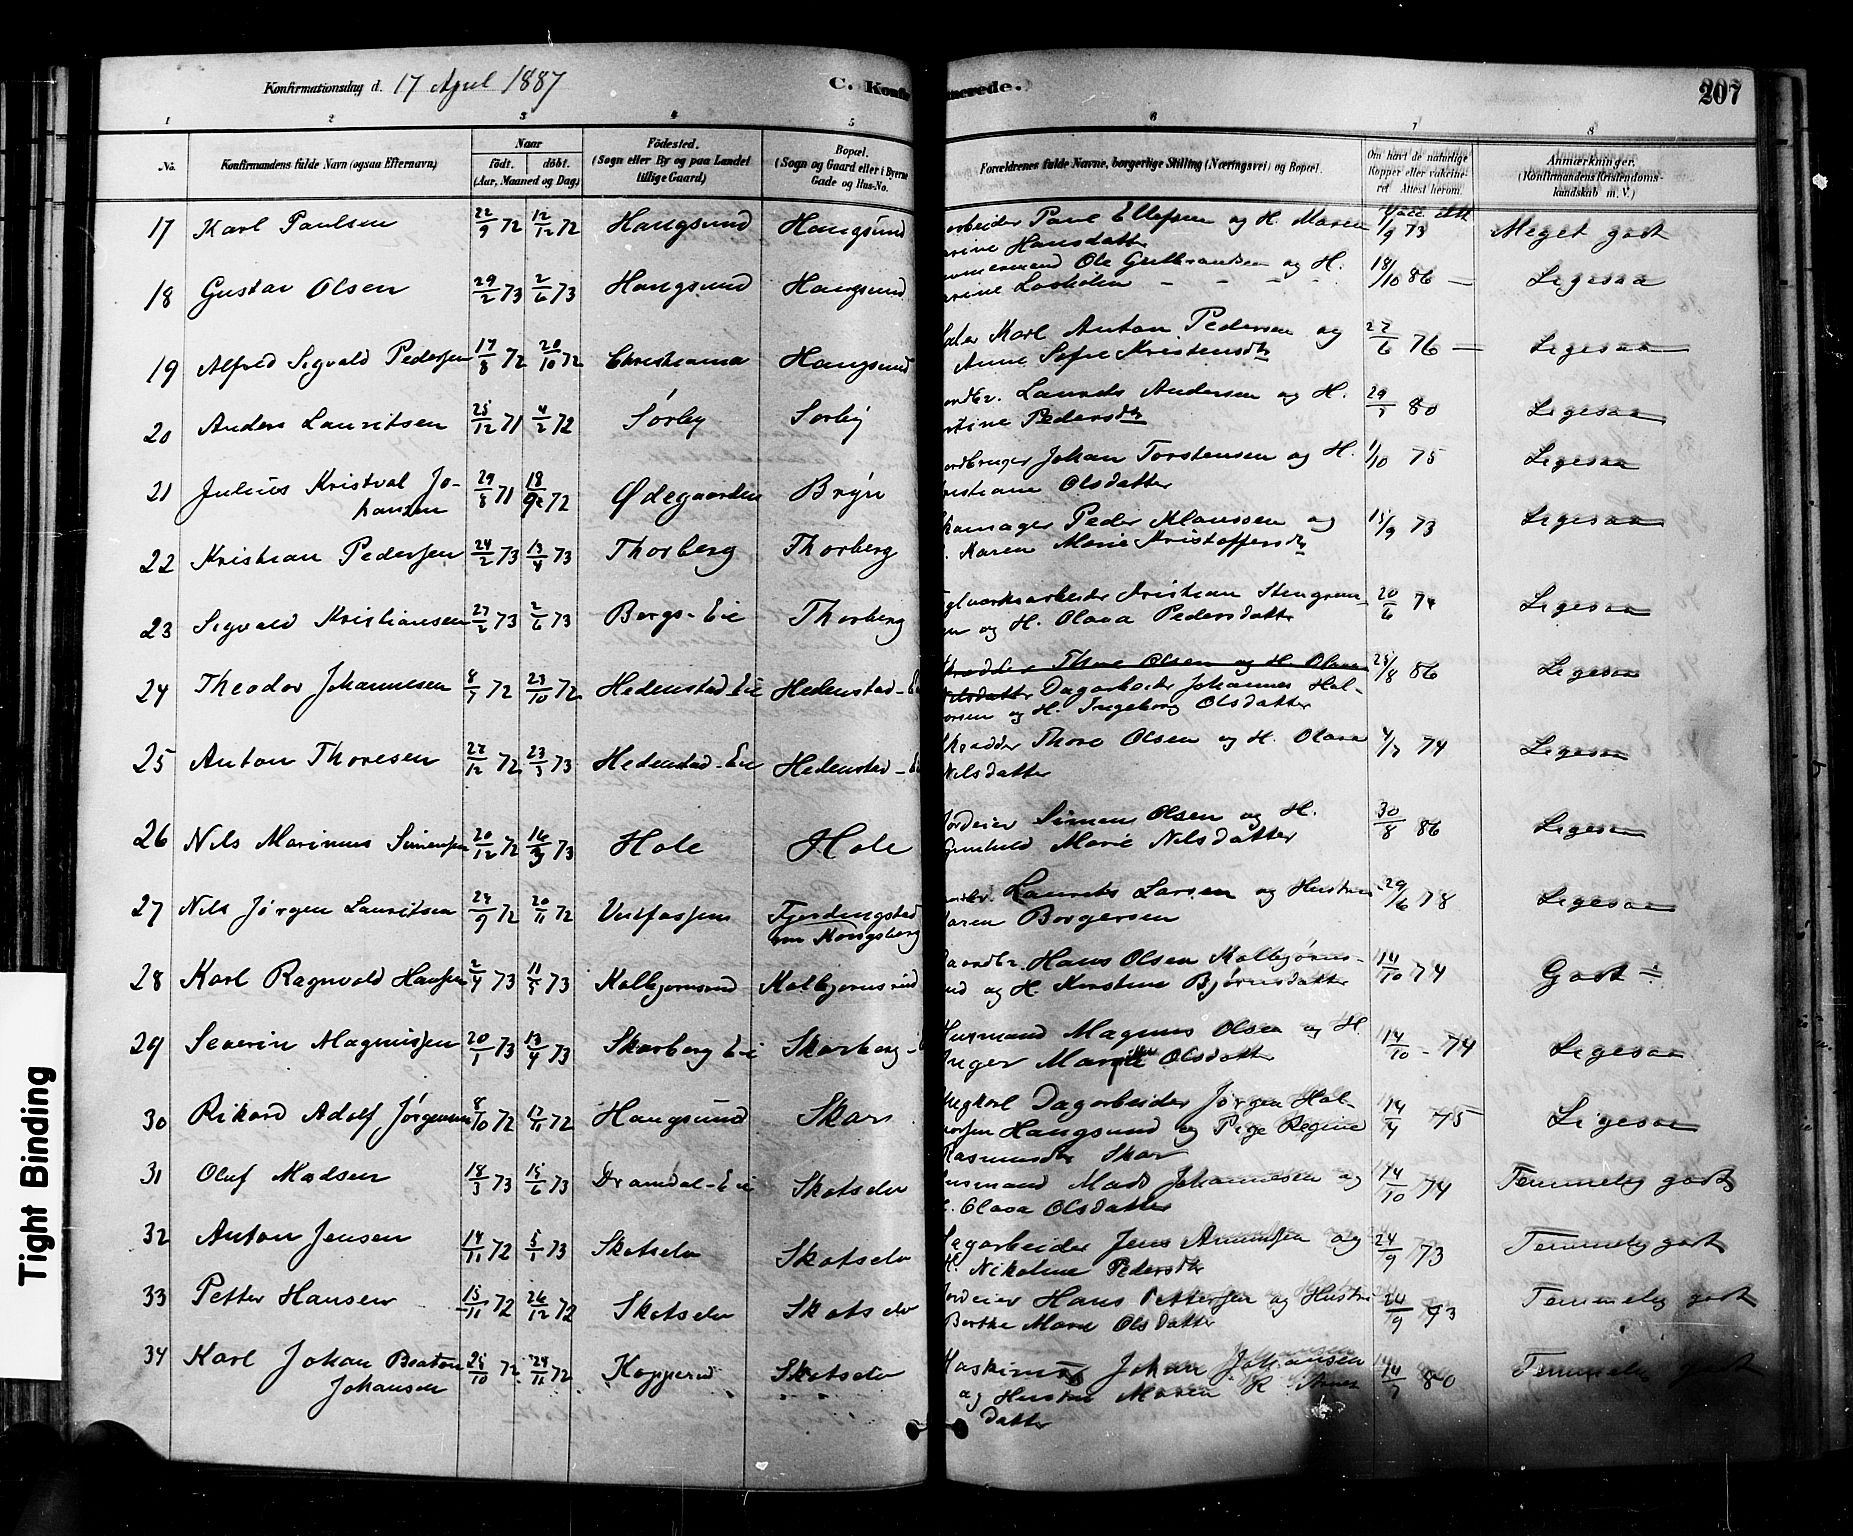 Konfirmationsdag d. 17 April 1887
C. Konfir
merede.
207
1 2 3 4 5 6 7 8
No. Konfirmandens fulde Navn (ogsaa Efternavn.) Naar født. døbt. (Aar, Maaned og Dag.) Fødested. (Sogn eller By og paa Landet tillige Gaard.) Bopæl. (Sogn og Gaard eller i Byerne Gade og Hus-No. Forældrenes fulde Navne, borgerlige Stilling (Næringsvei) og Bopæl. Om havt de naturlige Kopper eller vakcineret. Attest herom. Anmærkninger. (Konfirmandens Kristendomskundskab m. V.)
17 Karl Paulsen 22/9 72 12/12 72 Haugsund Haugsund arbeider Paul Ellefsen og H. Maren 1/9 73 Meget godt
arine Hansdatter
18 Gustav Olsen 29/2 73 2/6 73 Haugsund Haugsund mermand Ole Gulbrandsen og H. 18/10 86 — Ligesaa
19 Alfred Sigvald Pedersen 17/8 72 20/10 72 Christiania Haugsund Karl Anton Pedersen og 27/6 76 — Ligesaa
Anne Sofie Kristensdtr
20 Anders Lauritsen 25/12 71 4/2 72 Sørby Sørby ardbr. Laurits Andersen og H. 80 Ligesaa
Pedersdtr
21 Julius Kristval Jo- 29/8 71 18/ 72 Ødegaarden Bryn ordbruger Johan Torstensen og H. 1/10 75 Ligesaa
hansen istiane Olsdatter
22 Kristian Pedersen 24/2 73 13/4 73 Thorberg Thorberg komager Peder Klaussen og 15/9 73 Ligesaa
Karen Marie Kristoffersdtr
23 Sigvald Kristiansen 27/2 73 2/6 73 Bergs-Eie Thorberg glverksarbeider Kristian Stengrim- 20/6 74 Ligesaa
en og H. Olava Pedersdatter
24 Theodor Johannesen 8/7 72 23/10 72 Hedenstad-Eie Hedenstad-E krædder Thore Olsen og H. Olava 25/8 86 Ligesaa
Nilsdatter Dagarbeider Johannes Hal-
orsen og H. Ingeborg Olsdatter
25 Anton Thoresen 27/12 72 23/3 73 Hedenstad-Eie Hedenstad-E kradder Thore Olsen og H. Olava 4/7 74 Ligesaa
Nilsdatter
26 Nils Marinus Simensen 20/12 72 16/3 73 Hole Hole ordeier Simen Olsen og H. 30/8 86 Ligesaa
Gunhild Marie Nilsdatter
27 Nils Jørgen Lauritsen 24/9 72 20/11 72 Vestfossen Fjerdingstad Laurits Larsen og Hustru 29/6 78 Ligesaa
Kongsberg aren Borgersen
28 Karl Ragnvald Hansen 2/4 73 11/5 73 Kolbjørnsrud Kolbjørnsrud aardbr. Hans Olsen Kolbjørns- 14/10 74 Godt
ud og H. Kirstine Bjørnsdatter
29 Severin Magnussen 20/1 73 13/4 73 Skarberg Eie Skarberg - Husmand Magnus Olsen og H. 14/10 - 74 Ligesaa
Inger Marie Olsdatter
30 Rikard Adolf Jørgensen 8/10 72 17/11 72 Haugsund Skar Ungkarl Dagarbeider Jørgen Hal- 14/4 75 Ligesaa
vorsen Haugsund og Pige Regine
Rasmusdtr Skar
31 Oluf Madsen 18/3 73 15/6 73 Dramdal-Eie Skotselv usmand Mads Johannesen og 14/10 74 Temmelig godt
Olava Olsdatter
32 Anton Jensen 14/11 72 5/1 73 Skotselv Skotselv Dagarbeider Jens Amundsen og 24/9 73 Temmelig godt
H. Nikoline Pedersdtr
33 Petter Hansen 15/11 72 26/12 72 Skotselv Skotselv ordeier Hans Pettersen og Hustru 24/9 73 Temmelig godt
Berthe Marie Olsdatter
34 Karl Johan Beaton 25/10 72 24/11 72 Kopperud Skotselv Maskinist Johan Johansen 14/7 80 Temmelig godt
Johansen og Hustru Maren K.
datter
Tight Binding